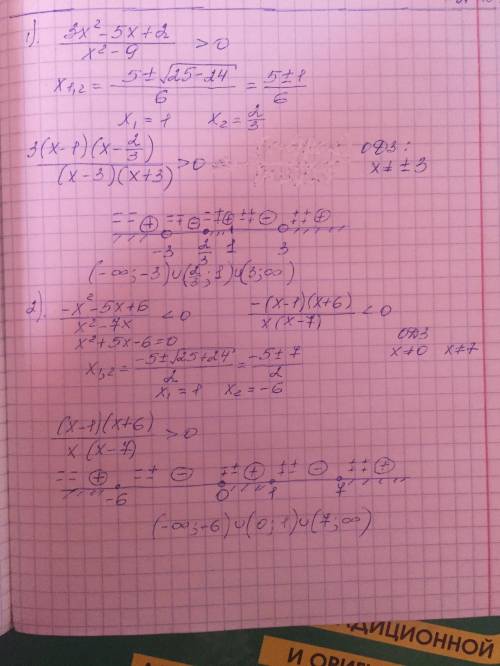 1). (3x² - 5x + 2)/(x² - 9) > 0
x₁,₂ = (5 ± √(25 - 24))/6 = (5 ± 1)/6
x₁ = 1 x₂ = 2/3
3(x - 1)(x - 2/3)/((x - 3)(x + 3)) > 0
ОДЗ:
x ≠ ± 3
-3 2/3 1 3
(-∞; -3) ∪ (2/3; 1) ∪ (3; ∞)
2). (-x² - 5x + 6)/(x² - 7x) < 0 -(x - 1)(x + 6)/(x(x - 7)) < 0
x² + 5x - 6 = 0
ОДЗ
x ≠ 0 x ≠ 7
x₁,₂ = (-5 ± √(25 + 24))/2 = (-5 ± 7)/2
x₁ = 1 x₂ = -6
(x - 1)(x + 6)/(x (x - 7)) > 0
-6 0 1 7
(-∞; -6) ∪ (0; 1) ∪ (7; ∞)
ДИЦИОННОЙ
И ОРИ